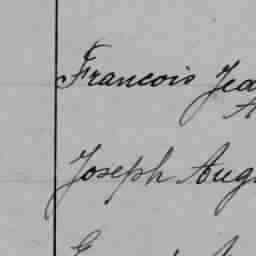 Francois Jea
A
Joseph Aug